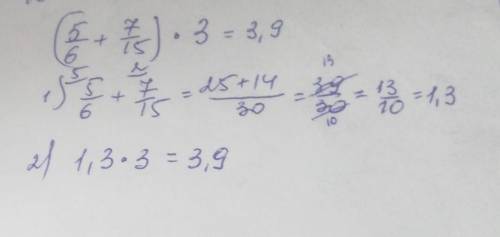 (5/6 + 7/15) · 3 = 3,9
1) 5/6 ⁵ + 7/15 ² = 25+14/30 = 39/30 ¹³/₁₀ = 13/10 = 1,3
2) 1,3 · 3 = 3,9